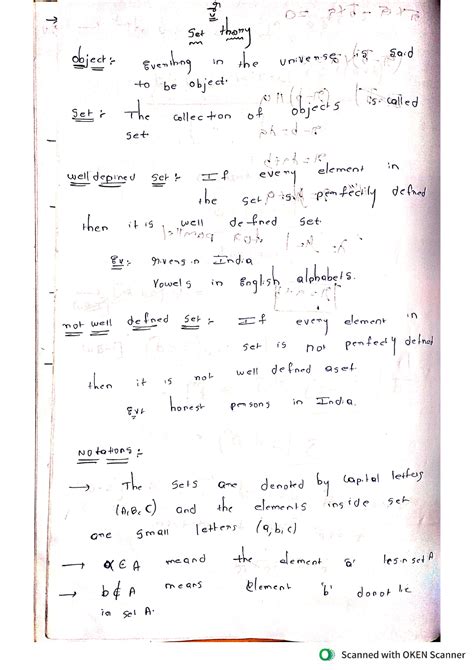 Set thony
object :- Eventhng in the universe is said
to be object.
Set :- The collection of objects is called
set.
well defined set :- If every element in
the set is perfectly defned
then it is well defned set.
Ex:- rivers in India
Vowels in English alphabets.
not well defned set :- If every element in
set is not perfectly defned
then it is not well defned a set
Ex: honest persons in India.
Notations :-
→ The sets are denoted by capital letters
(A,B,C) and the elements inside set
are small letters (a,b,c)
→ a∈A means the element 'a' in set A
→ b∉A means Element 'b' donot
in set A.
Scanned with OKEN Scanner